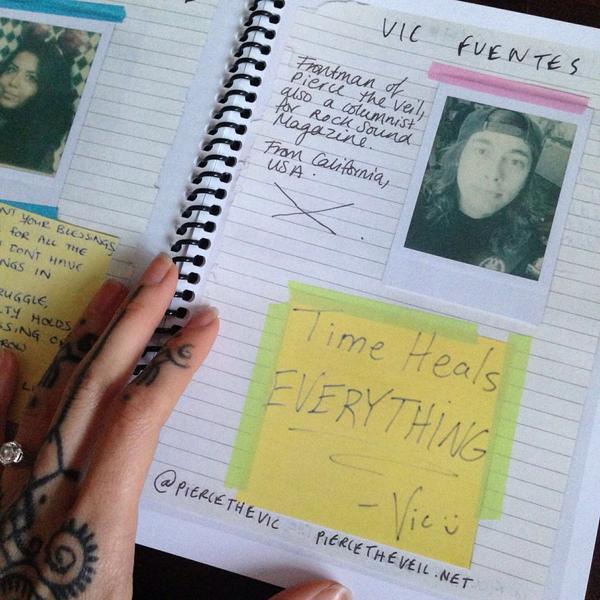 NT YOUR BLESSINGS,
FOR ALL THE
DONT HAVE
NGS IN
RUGGLE,
LTY HOLDS
SSING O
VIC FUENTES
Frontman of
pierce the veil,
also a columnist
for Rock Sound
Magazine.
From California,
USA.
Time Heals
EVERYTHING
- Vic
@PIERCETHEVIC
PIERCETHEVEIL.NET